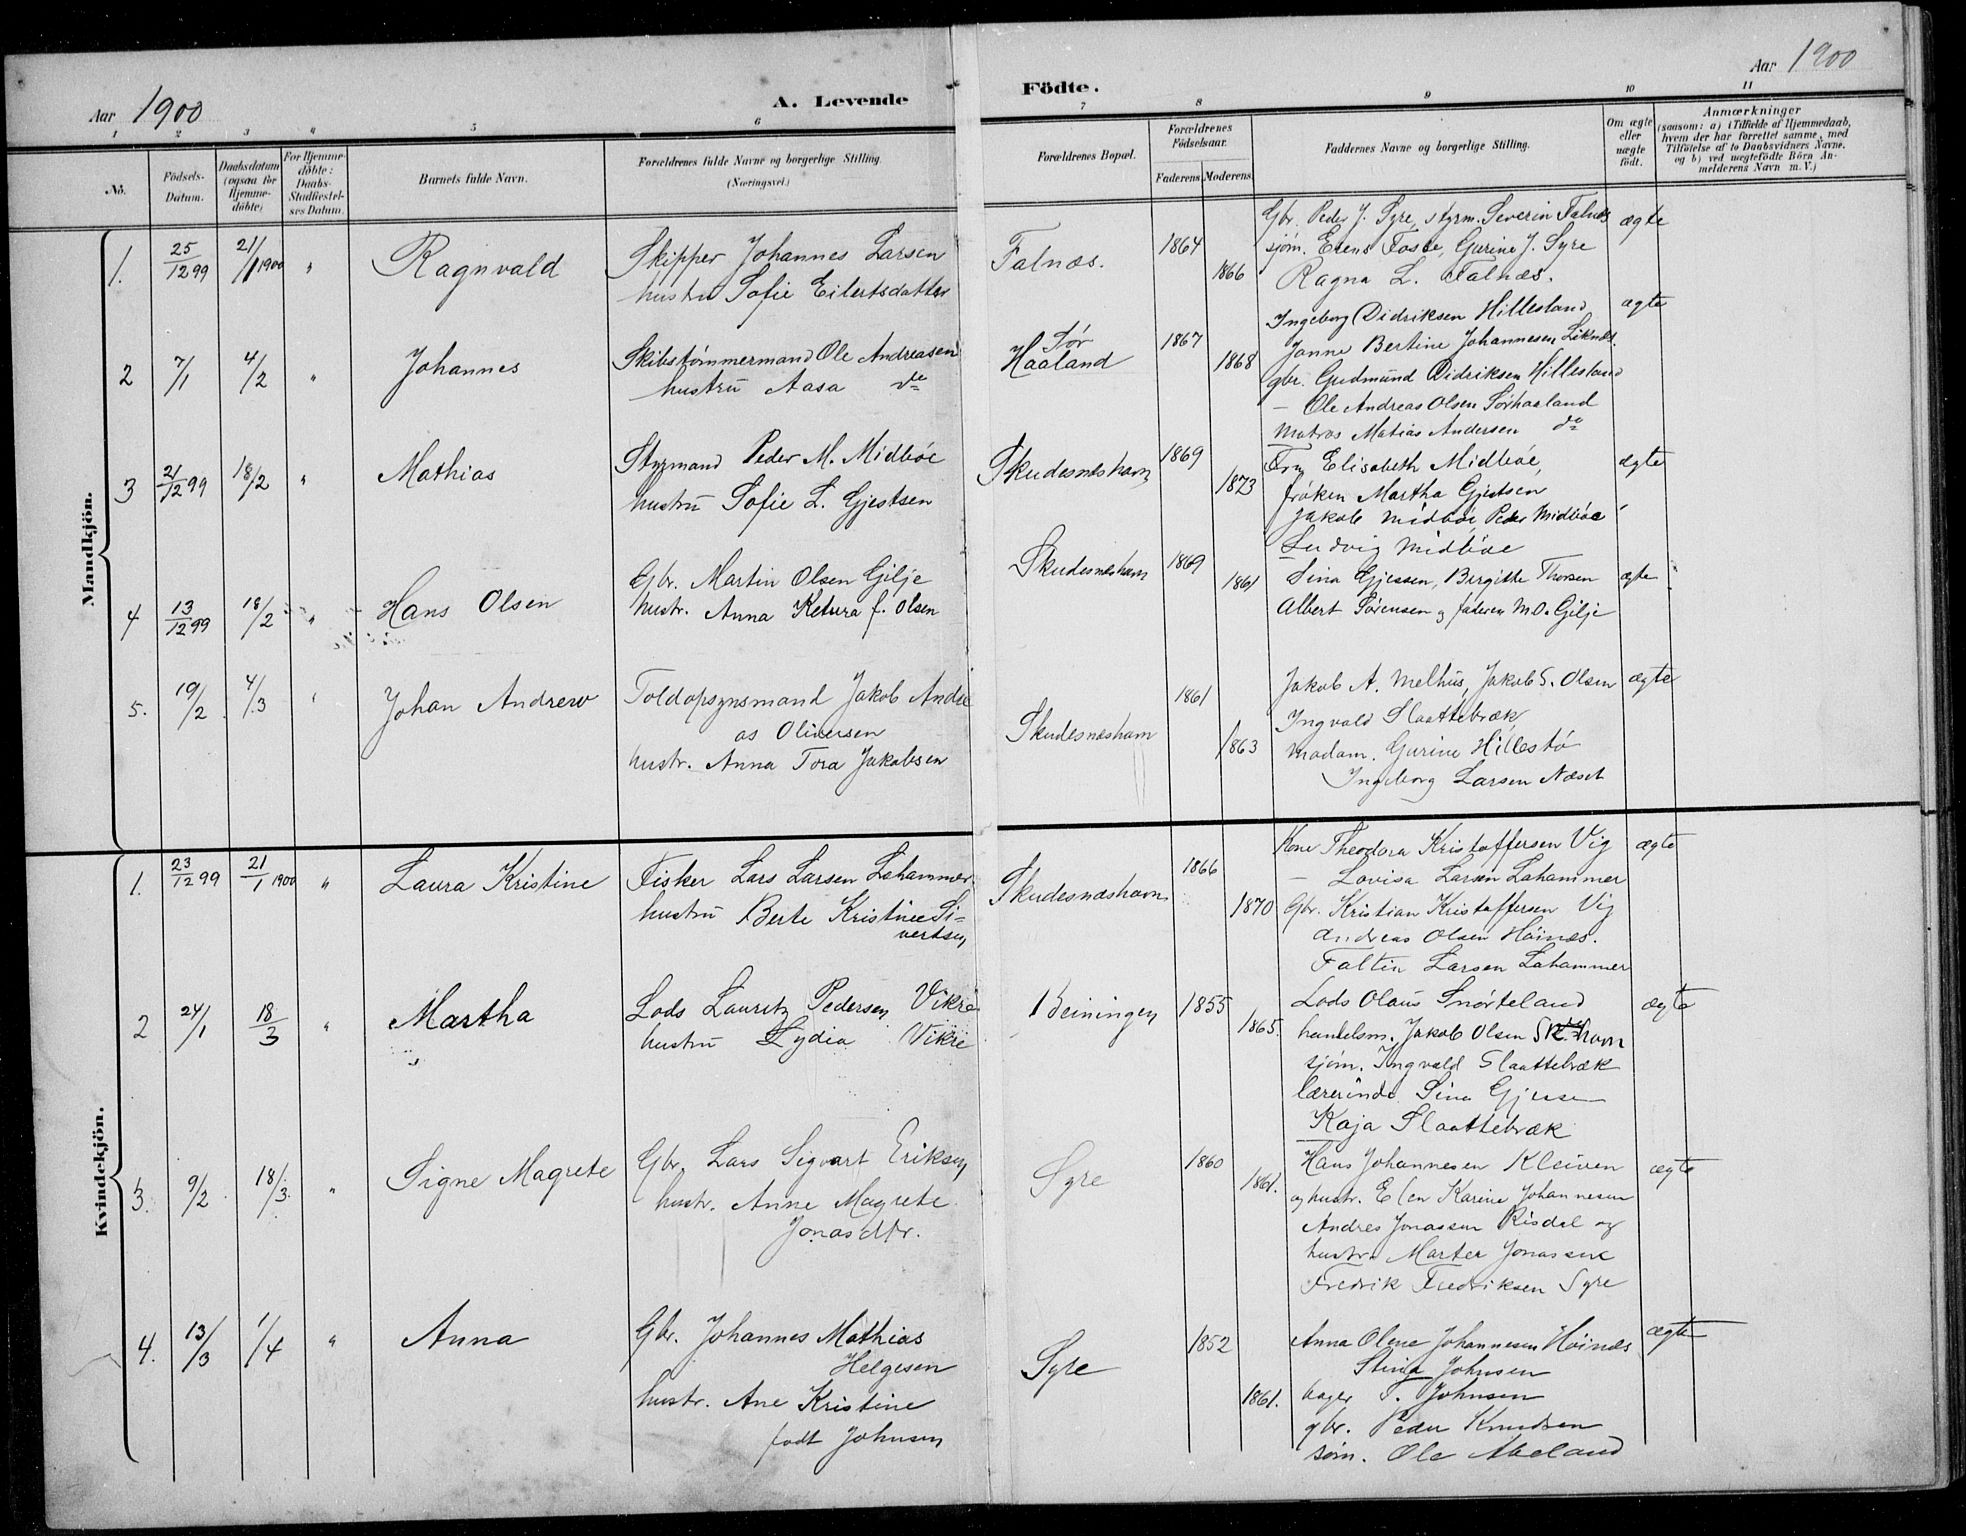 Aar 1900
A. Levende
Födte.
Aar 1900
1 2 3 4 5 6 7 8 9 10 11
No.
Födsels-Datum.
Daabsdatum (ogsaa for Hjemme-döbte)
For Hjemme-döbte: Daabs-Stadfæstel-ses Datum.
Barnets fulde Navn.
Forældrenes fulde Navne og borgerlige Stilling. (Næringsvei.)
Forældrenes Bopæl.
Forældrenes Födselsaar.
Faderens. Moderens.
Faddernes Navne og borgerlige Stilling.
Om ægte eller uægte födt.
Anmærkninger
(saasom: a) i Tilfælde af Hjemmedaab,
hvem der har forrettet samme, med
Tilföielse af to Daabsvidners Navne.
og b) ved uægtefödte Börn An-
melderens Navn m. V.)
Mandkjön.
1. 25/12 99 21/1 1900 " Ragnvald
Skipper Johannes Larsen
hustru Sofie Eilertsdatter
Falnæs. 1864 1866
Gbr. Peder J. Syre, styrm. Severin Falnæs ægte
sjøm. Gurine J. Syre
Ragna L. Falnæs.
2 7/1 4/2 " Johannes
Skibstømmermand Ole Andreasen
hustru Aasa do
Sør
Haaland 1867 1868
Ingeborg Didriksen Hillesland ægte
Janne Bertine Johannesen Liknæs.
gbr. Gudmund Didriksen Hillesland
— Ole Andreas Olsen Sørhaaland
Matros Matias Andersen do
3 21/12 99 18/2 " Mathias
Styrmand Peder M. Midbøe
hustru Sofie L. Gjestsen
Skudesneshavn 1869 1873
Fru Elisabeth Midbøe, ægte
frøken Martha Gjestsen
Jakob Midbøe, Peder Midbøe
Ludvig Midbøe
4 13/12 99 18/2 " Hans Olsen
Gbr. Martin Olsen Gilje
hustr. Anna Ketura f. Olsen
Skudesneshavn 1869 1861
Sina Gjessen, Birgitte Thorsen ægte
Albert Sørensen og faderen M.O. Gilje
5. 19/2 4/3 " Johan Andrew
Toldopsynsmand Jakob Andre
as Oliversen
hustr. Anna Tora Jakobsen
Skudesneshavn 1861 1863
Jakob A. Melhus, Jakob S. Olsen ægte
Ingvald Slaattebræk,
Madam. Gurine Hillestø
Ingeborg Larsen Næset
Kvindekjön.
1. 23/12 99 21/1 1900 " Laura Kristine
Fisker Lars Larsen Lahammer
hustru Berte Kristine Si=
vertsen
Skudesneshavn 1866 1870
Kone Theodora Kristoffersen Vig ægte
— Lovisa Larsen Lahammer
Gbr. Kristian Kristoffersen Vig
Andreas Olsen Høinæs.
Faltin Larsen Lahammer
2 24/1 18/3 " Martha
Lods Lauritz Pedersen Vikre
hustru Lydia Vikre
Beiningen 1855 1865.
Lods Olaus Snørteland ægte
handelsm. Jakob Olsen Sk.havn
sjøm. Ingvald Slaattebræk
lærerinde Sina Gjessen
Kaja Slaattebræk
3. 9/2 18/3. " Signe Magrete
Gbr. Lars Sigvart Eriksen
hustr. Anne Magrete
Jonasdtr.
Syre 1860 1861.
Hans Johannesen Kleiven ægte
og hustr. Elen Karine Johannesen
Andres Jonassen Risdal og
hustr. Marter Jonassen
Fredrik Fredriksen Syre
4. 13/3 1/4 " Anna
Gbr. Johannes Mathias
Helgesen
hustr. Ane Kristine
født Johnsen
Syre 1852 1861.
Anna Olene Johannesen Høinæs ægte
Stina Johnsen
bager T. Johnsen
gbr. Peder Knudsen
søm. Ole Abeland